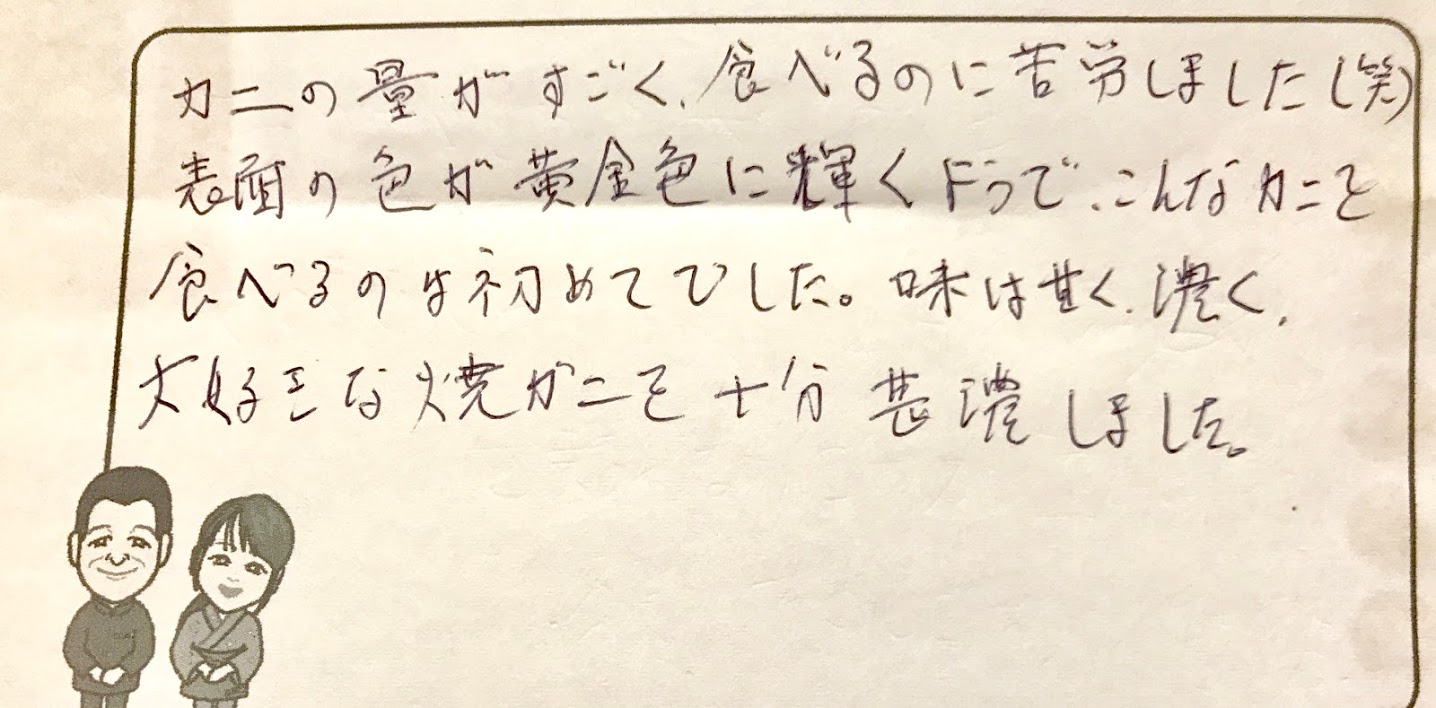 カニの量がすごく、食べるのに苦労しました(笑)
表面の色が黄金色に輝く で、こんなカニを
食べるのは初めてでした。味は甘く、濃く、
大好きな焼ガニを十分甚濃しました。